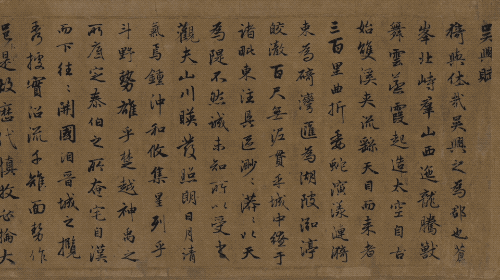 吳興賦
猗與休哉吳興之為郡也蒼
峯北峙羣山西迤龍騰獸
舞雲蒸霞起造太空自古
始雙溪夾流繇天目而来者
三百里曲折委蛇演漾漣漪
束為碕灣匯為湖陂泓渟
皎澈百尺無泥貫乎城中繚于
諸毗東注具區渺〻漭〻以天
為隄不然誠未知所以受之
觀夫山川暎發照朗日月清
氣焉鍾沖和攸集星列乎
斗野勢雄乎楚越神禹之
所底定泰伯之所奄宅自漢
而下往〻開國洎晉城之攬
秀據實沿流千雉面勢作
邑是故歷代慎牧必掄大